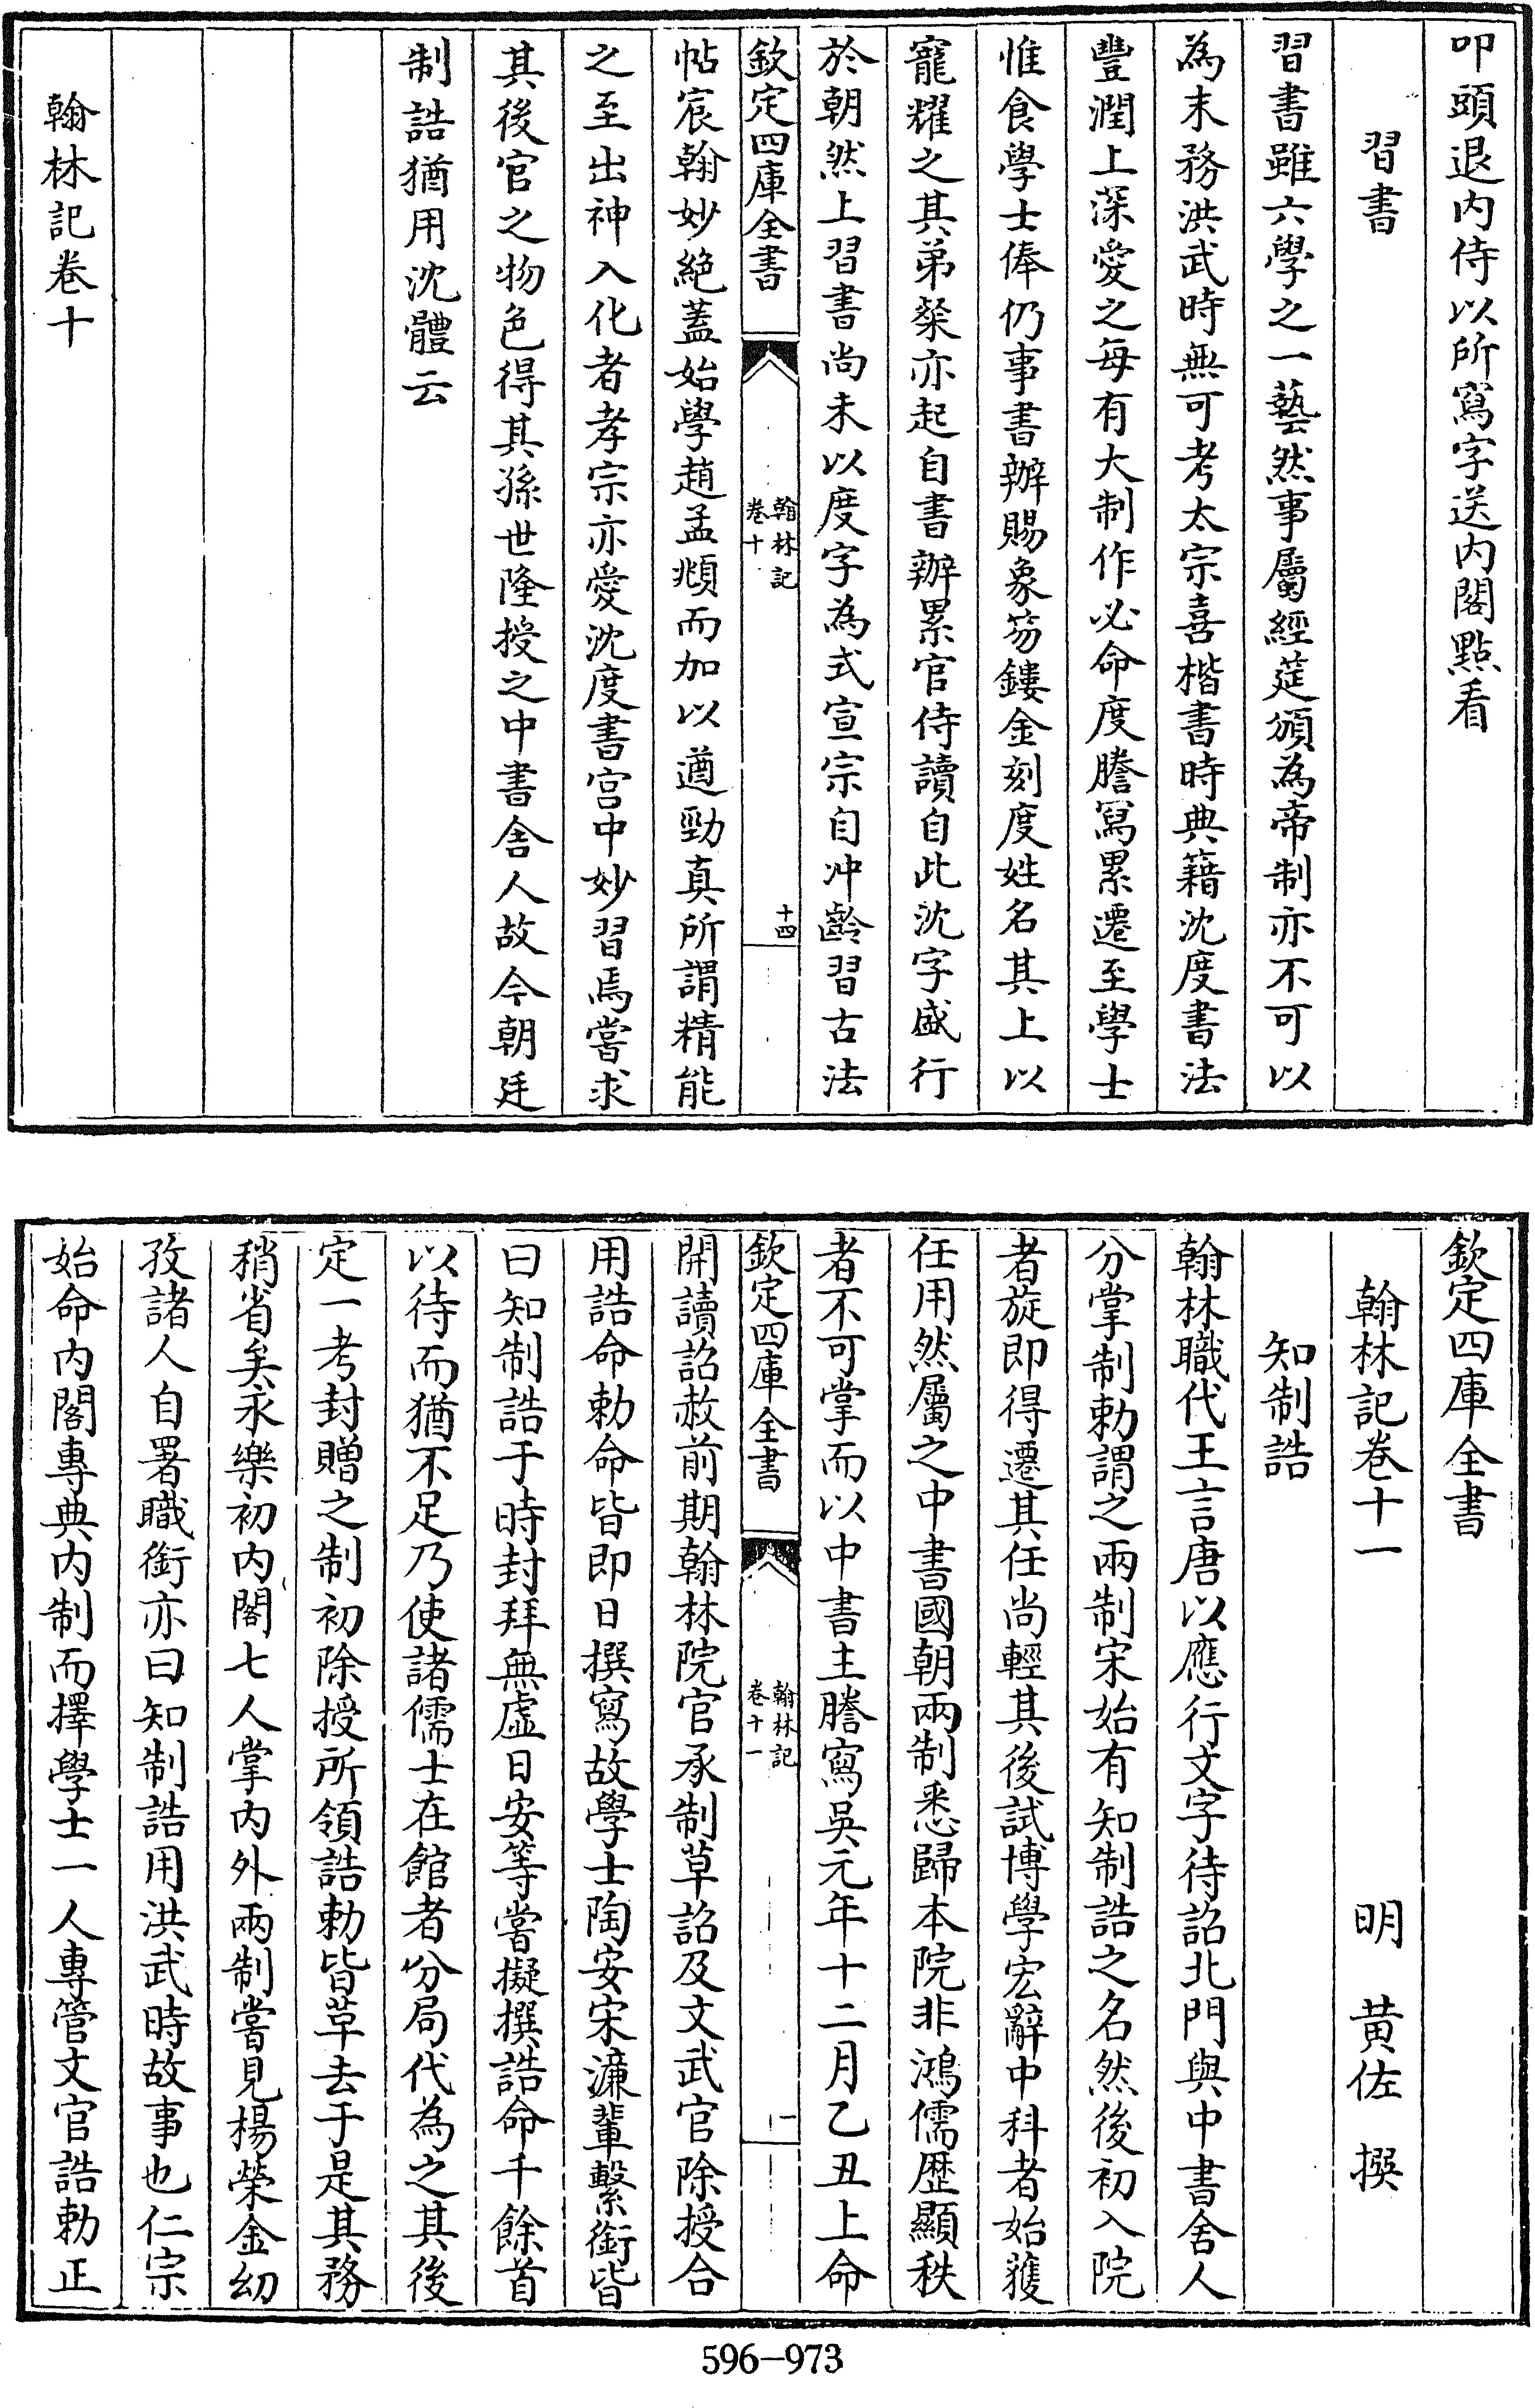 叩頭退内侍以所寫字送内閣點看
習書
習書雖六學之一藝然事屬經筵頒為帝制亦不可以
為末務洪武時無可考太宗喜楷書時典籍沈度書法
豐潤上深愛之每有大制作必命度謄寫累遷至學士
惟食學士俸仍事書辦賜象笏鏤金刻度姓名其上以
寵耀之其弟粲亦起自書辦累官侍讀自此沈字盛行
於朝然上習書尚未以度字為式宣宗自冲齡習古法
欽定四庫全書
翰林記
卷十
十四
帖宸翰妙絶蓋始學趙孟頫而加以遒勁真所謂精能
之至出神入化者孝宗亦愛沈度書宫中妙習焉嘗求
其後官之物色得其孫世隆授之中書舍人故今朝廷
制誥猶用沈體云
翰林記卷十
欽定四庫全書
翰林記卷十一
明 黄佐 撰
知制誥
翰林職代王言唐以應行文字待詔北門與中書舍人
分掌制勅謂之兩制宋始有知制誥之名然後初入院
者旋即得遷其任尚輕其後試博學宏辭中科者始獲
任用然屬之中書國朝兩制悉歸本院非鴻儒歴顯秩
者不可掌而以中書主謄寫吳元年十二月乙丑上命
欽定四庫全書
翰林記
卷十一
一
開讀詔赦前期翰林院官承制草詔及文武官除授合
用誥命勅命皆即日撰寫故學士陶安宋濂輩繫銜皆
曰知制誥于時封拜無虚日安等嘗擬撰誥命千餘首
以待而猶不足乃使諸儒士在館者分局代為之其後
定一考封贈之制初除授所領誥勅皆草去于是其務
稍省矣永樂初内閣七人掌内外兩制嘗見楊榮金幼
孜諸人自署職銜亦曰知制誥用洪武時故事也仁宗
始命内閣專典内制而擇學士一人專管文官誥勅正
596-973